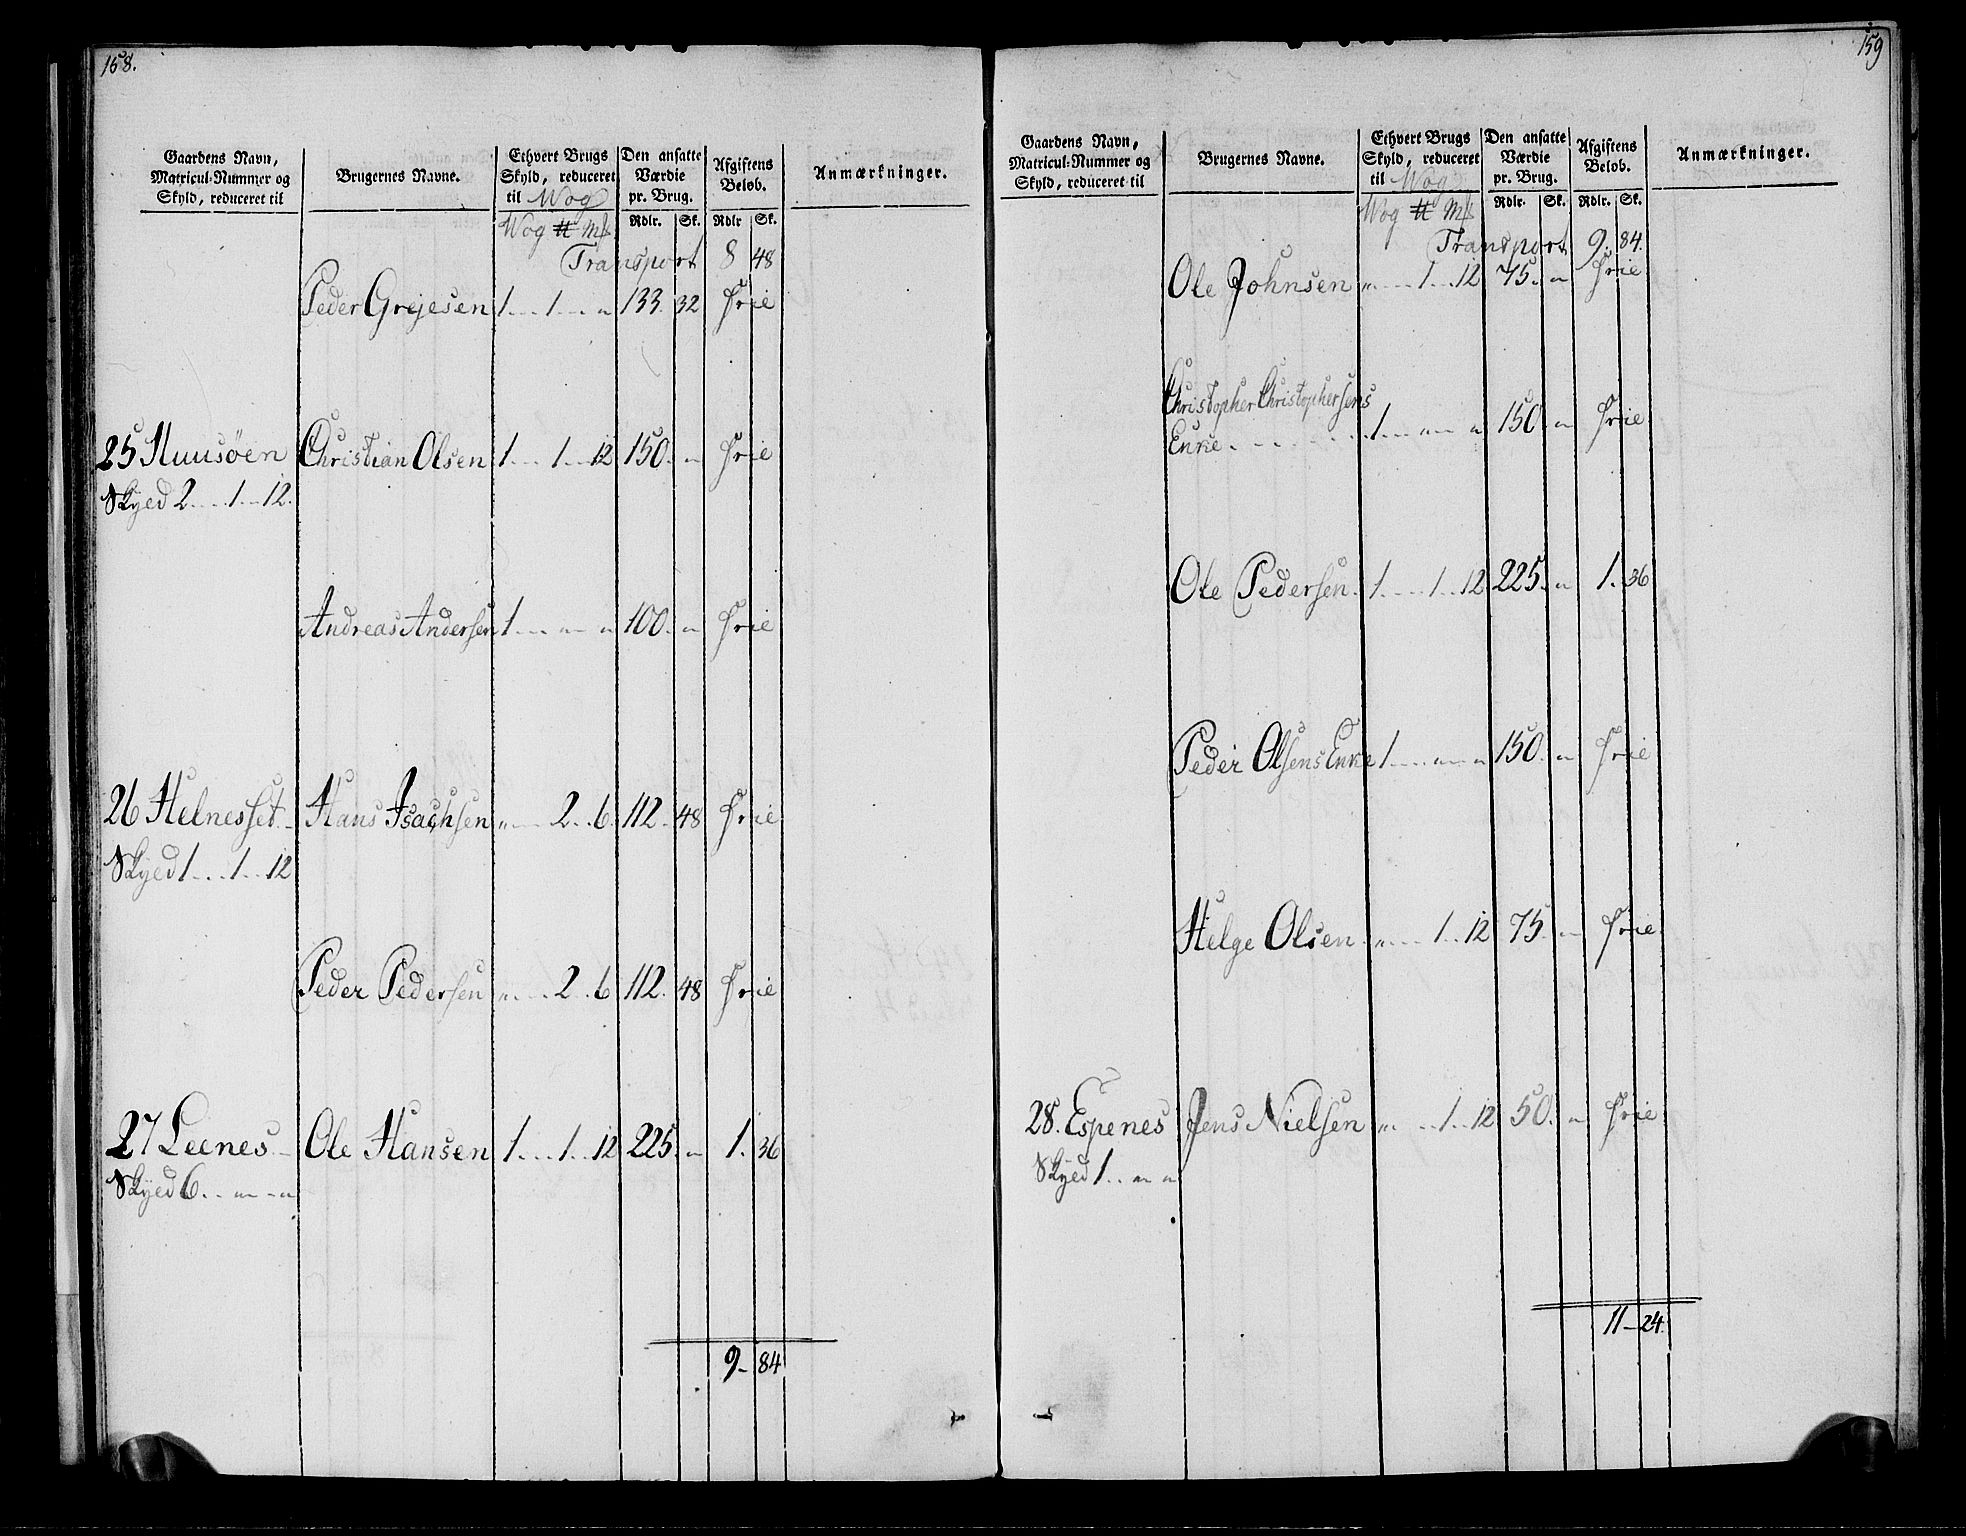 158.
Gaardens Navn, Matricul-Nummer og Skyld, reduceret til
Brugernes Navne.
Ethvert Brugs Skyld, reduceret til Wog
Den ansatte Værdie pr. Brug.
Afgiftens Beløb.
Anmærkninger.
Wog ℔ Mk Rdlr. Sk. Rdlr Sk.
Transport 8 48
Peder Grejesen 1 . . . 1 . . „ 133. 32 Frie
25 Huusøen Christian Olsen 1 . . . 1 . . 12 150. „ Frie
Skyed 2 . . . 1 . . 12.
Andreas Andersen 1 . . . „ . . „ 100. „ Frie
26 Helnesset Hans Isachsen „ . . . 2 . . 6. 112. 48 Frie
Skyed 1 . . . 1 . . 12
Peder Pedersen „ . . . 2 . . 6 112. 48 Frie
27 Leenes Ole Hansen 1 . . . 1 . . 12 225. „ 1. 36
Skyed 6 . . „ . . „
9 - 84
159
Gaardens Navn, Matricul-Nummer og Skyld, reduceret til
Brugernes Navne.
Ethvert Brugs Skyld, reduceret til Wog
Den ansatte Værdie pr. Brug.
Afgiftens Beløb.
Anmærkninger.
Wog ℔ Mk Rdlr. Sk. Rdlr. Sk.
Transport 9. 84.
Ole Johnsen „ . . . 1 . . 12 75. „ Frie
Christopher Christophersens
Enke . . . . . . 1 . . . „ . . „ 150. „ Frie
Ole Pedersen. 1 . . . 1 . . 12 225. „ 1. 36
Peder Olsens Enke 1 . . . „ . . „ 150. „ Frie
Helge Olsen „ . . . 1 . . 12 75. „ Frie
28. Espenes Jens Nielsen „ . . . 1 . . 12 50. „ Frie
Skyed 1 . . „ . „
11 - 24.